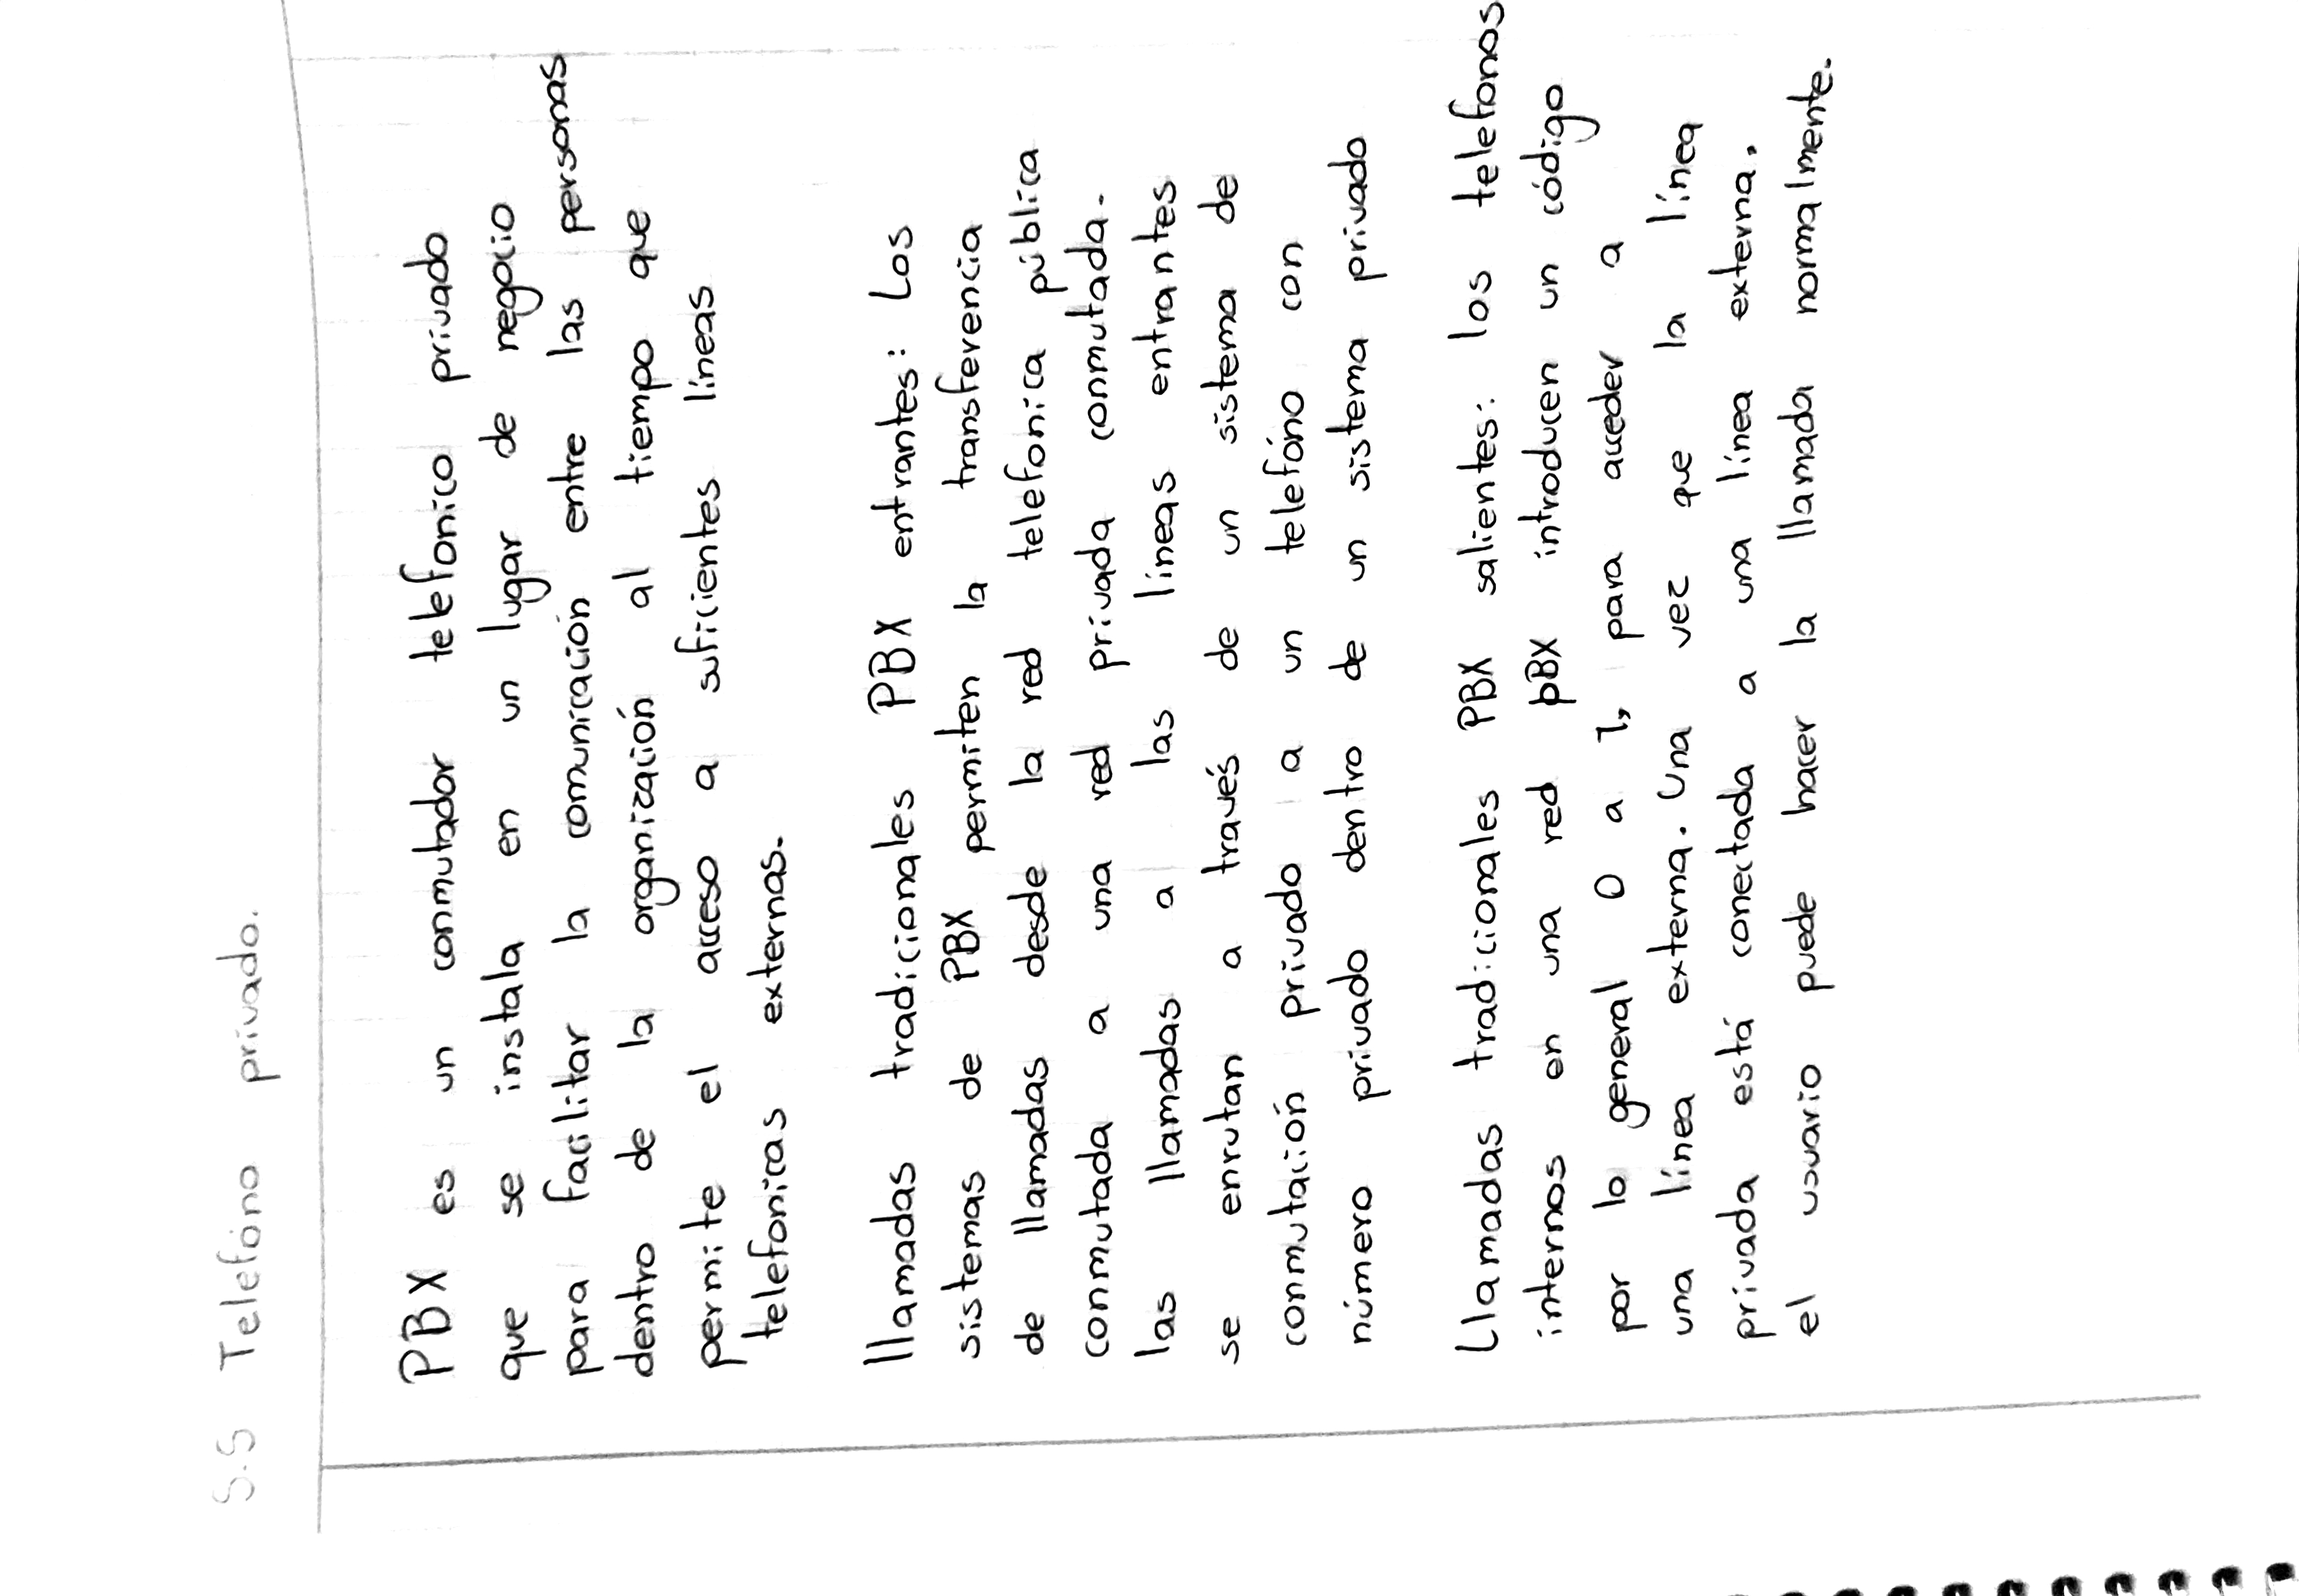 5.5 Telefóno privado.
PBX es un conmutador telefonico privado
que se instala en un lugar de negocio
para facilitar la comunicación entre las personas
dentro de la organización al tiempo que
permite el acceso a suficientes líneas
telefonicas externas.
llamadas tradicionales PBX entrantes: Los
sistemas de PBX permiten la transferencia
de llamadas desde la red telefonica pública
conmutada a una red privada conmutada.
las llamadas a las líneas entrantes
se enrutan a través de un sistema de
conmutación privado a un telefóno con
número privado dentro de un sistema privado
Llamadas tradicionales PBX salientes: los telefonos
internos en una red pBX introducen un código
por lo general 0 a 1, para acceder a
una línea externa. Una vez que la línea
privada está conectada a una línea externa,
el usuario puede hacer la llamada normalmente.